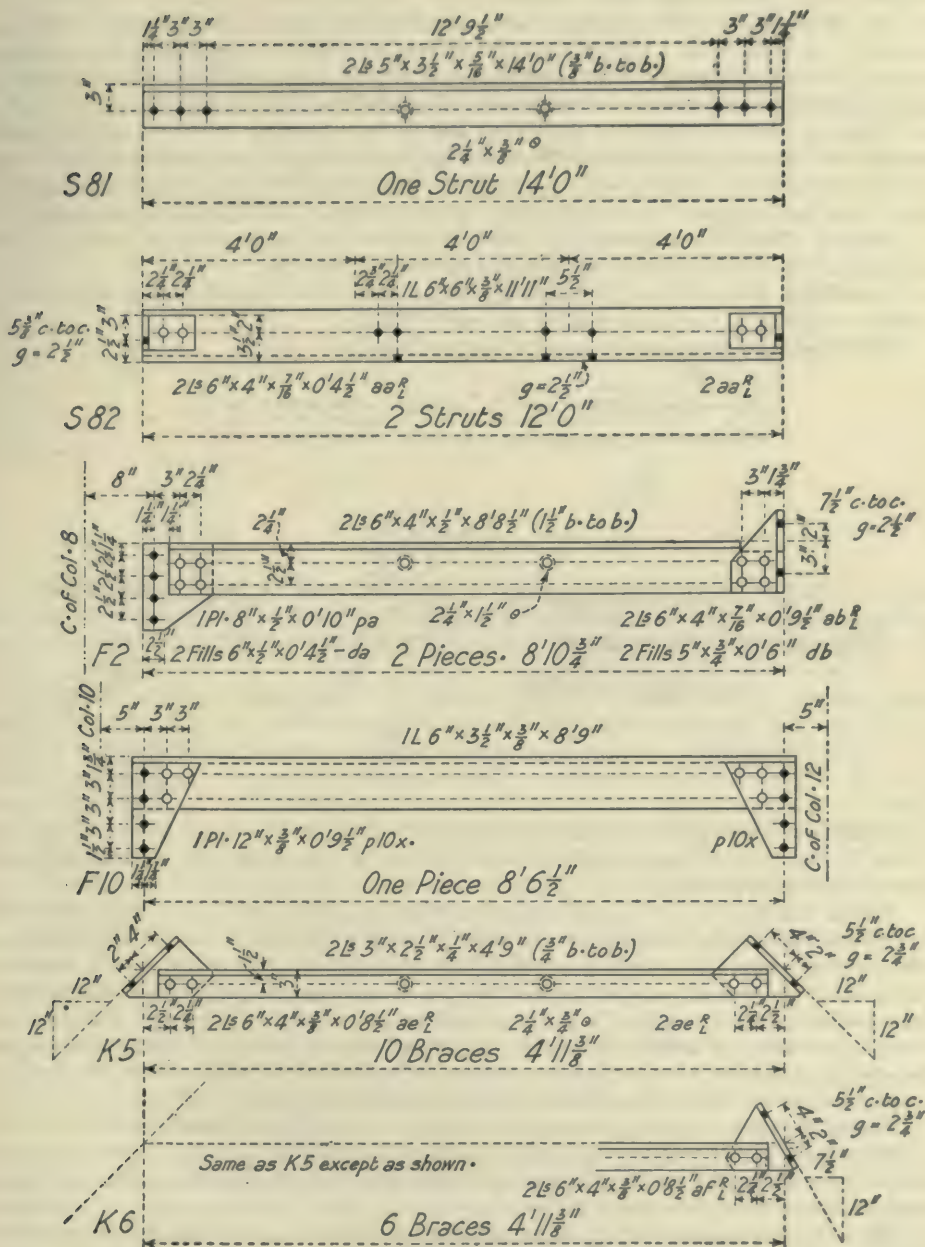 1 1/4" 3" 3" 12' 9 1/2" 3" 3" 1 1/4"
2 Ls 5" × 3 1/2" × 5/16" × 14'0" (3/8" b. to b.)
3"
2 1/4" × 3/8" ⊙
S81 One Strut 14'0"
4'0" 4'0" 4'0"
2 1/4" 2 1/4" 2 3/4" 2 1/4" 1L 6" × 6" × 3/8" × 11'11" 5 1/2"
5 3/8" c. to c.
g = 2 1/2"
2 1/2" 3" 3 1/2" 2"
2 Ls 6" × 4" × 7/16" × 0'4 1/2" aa R L g = 2 1/2" 2 aa R L
S82 2 Struts 12'0"
8" 3" 2 1/4" 3" 1 3/4"
1 1/4" 1 1/4" 2 1/4" 2 Ls 6" × 4" × 1/2" × 8'8 1/2" (1 1/2" b. to b.) 7 1/2" c. to c.
g = 2 1/2"
C. of Col. 8 2 1/2" 2 1/2" 2 1/2" 1 1/4" 2 1/2" 3" 2"
1 Pl. 8" × 1/2" × 0'10" pa 2 1/4" × 1 1/2" ⊙ 2 Ls 6" × 4" × 7/16" × 0'9 1/2" ab R L
2 1/2"
F2 2 Fills 6" × 1/2" × 0'4 1/2" - da 2 Pieces. 8'10 3/4" 2 Fills 5" × 3/4" × 0'6" db
5" 3" 3" 1L 6" × 3 1/2" × 3/8" × 8'9" 5"
C. of Col. 10 1 1/2" 3" 3" 3" 1 3/4" C. of Col. 12
1 Pl. 12" × 3/8" × 0'9 1/2" p10x. p10x
1 1/4" 1 1/4"
F10 One Piece 8'6 1/2"
2" 4" 1 1/2" 2 Ls 3" × 2 1/2" × 1/4" × 4'9" (3/4" b. to b.) 4" 2" 5 1/2" c. to c
g = 2 3/4"
12" 3" 12"
12" 2 1/2" 2 1/4" 2 Ls 6" × 4" × 3/8" × 0'8 1/2" ae R L 2 1/4" × 3/4" ⊙ 2 ae R L 2 1/4" 2 1/2" 12"
K5 10 Braces 4'11 3/8"
5 1/2" c. to c.
4" 2" g = 2 3/4"
Same as K5 except as shown. 7 1/2"
2 Ls 6" × 4" × 3/8" × 0'8 1/2" aF R L 2 1/4" 2 1/2" 12"
K6 6 Braces 4'11 3/8"